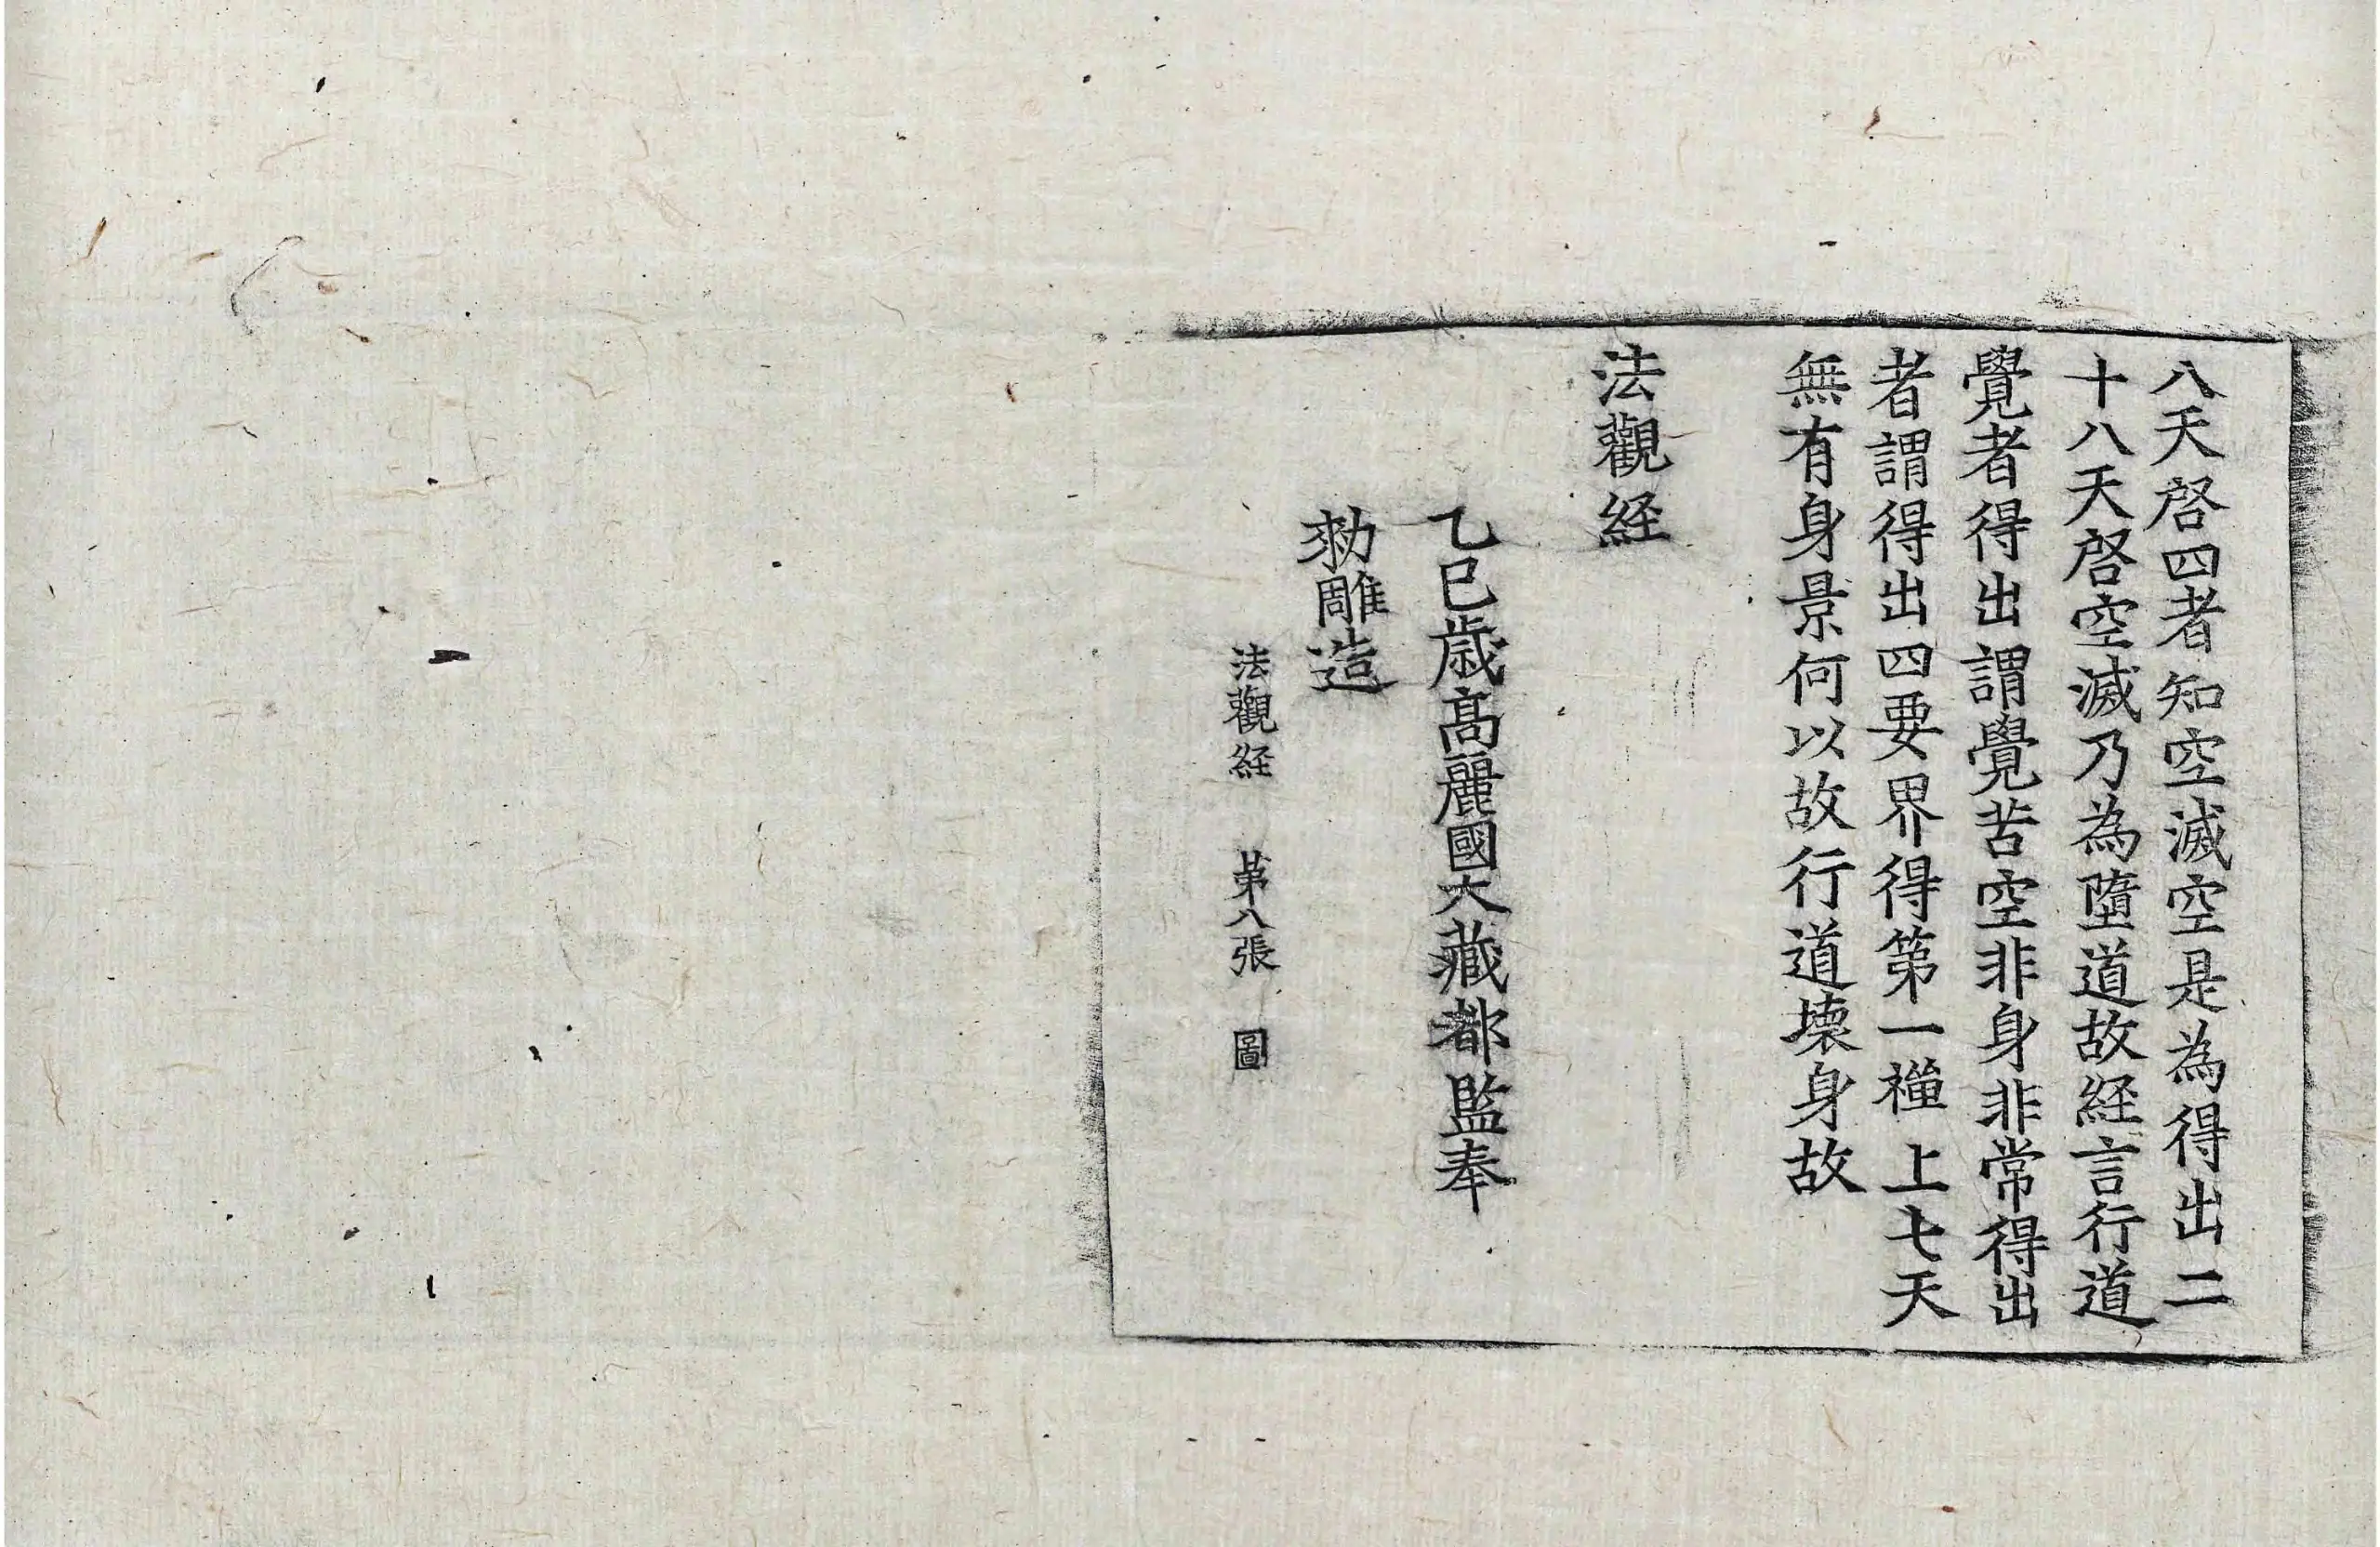 八天啓四者知空滅空是為得出二
十八天啓空滅乃為墮道故経言行道
覺者得出謂覺苦空非身非常得出
者謂得出四要界得第一禪上七天
無有身景何以故行道壞身故
法觀経
乙巳歲高麗國大藏都監奉
勑雕造
法觀経 苐八張 圖